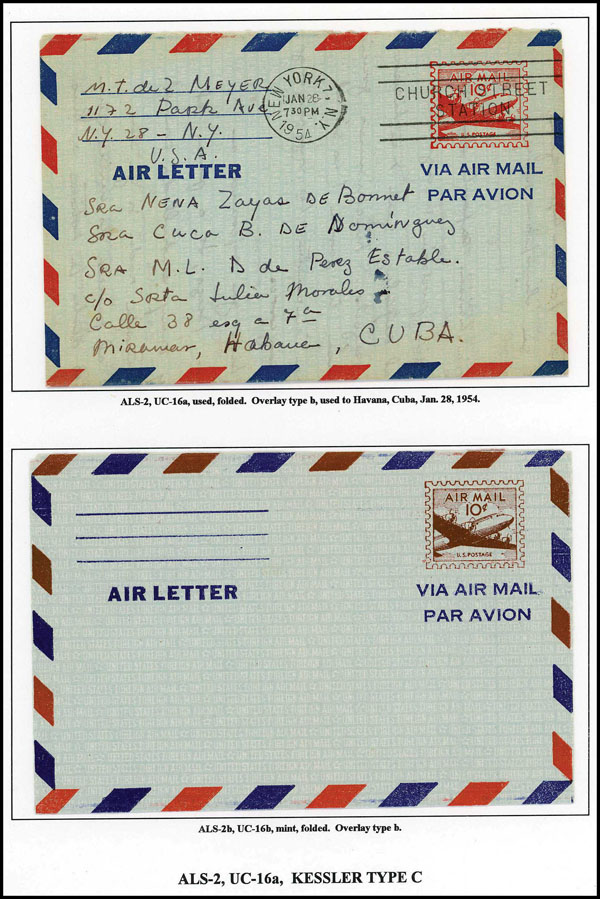 M.T. de Z MEYER
1172 Park Ave
N.Y. 28 - N.Y.
U.S.A.
NEW YORK 7 N.Y.
JAN 28
7 30 PM
1954
AIR MAIL
10¢
U.S. POSTAGE
CHURCH STREET
STATION
AIR LETTER
VIA AIR MAIL
PAR AVION
SRA NENA Zayas DE Bonnet
Sra Cuca B. DE Domínguez
SRA M.L. D de Perez Estable.
c/o Srta Julia Morales
Calle 38 esq a 7a
Miramar, Habana, CUBA.
ALS-2, UC-16a, used, folded. Overlay type b, used to Havana, Cuba, Jan. 28, 1954.
AIR MAIL
10¢
U.S. POSTAGE
AIR LETTER
VIA AIR MAIL
PAR AVION
ALS-2b, UC-16b, mint, folded. Overlay type b.
ALS-2, UC-16a, KESSLER TYPE C